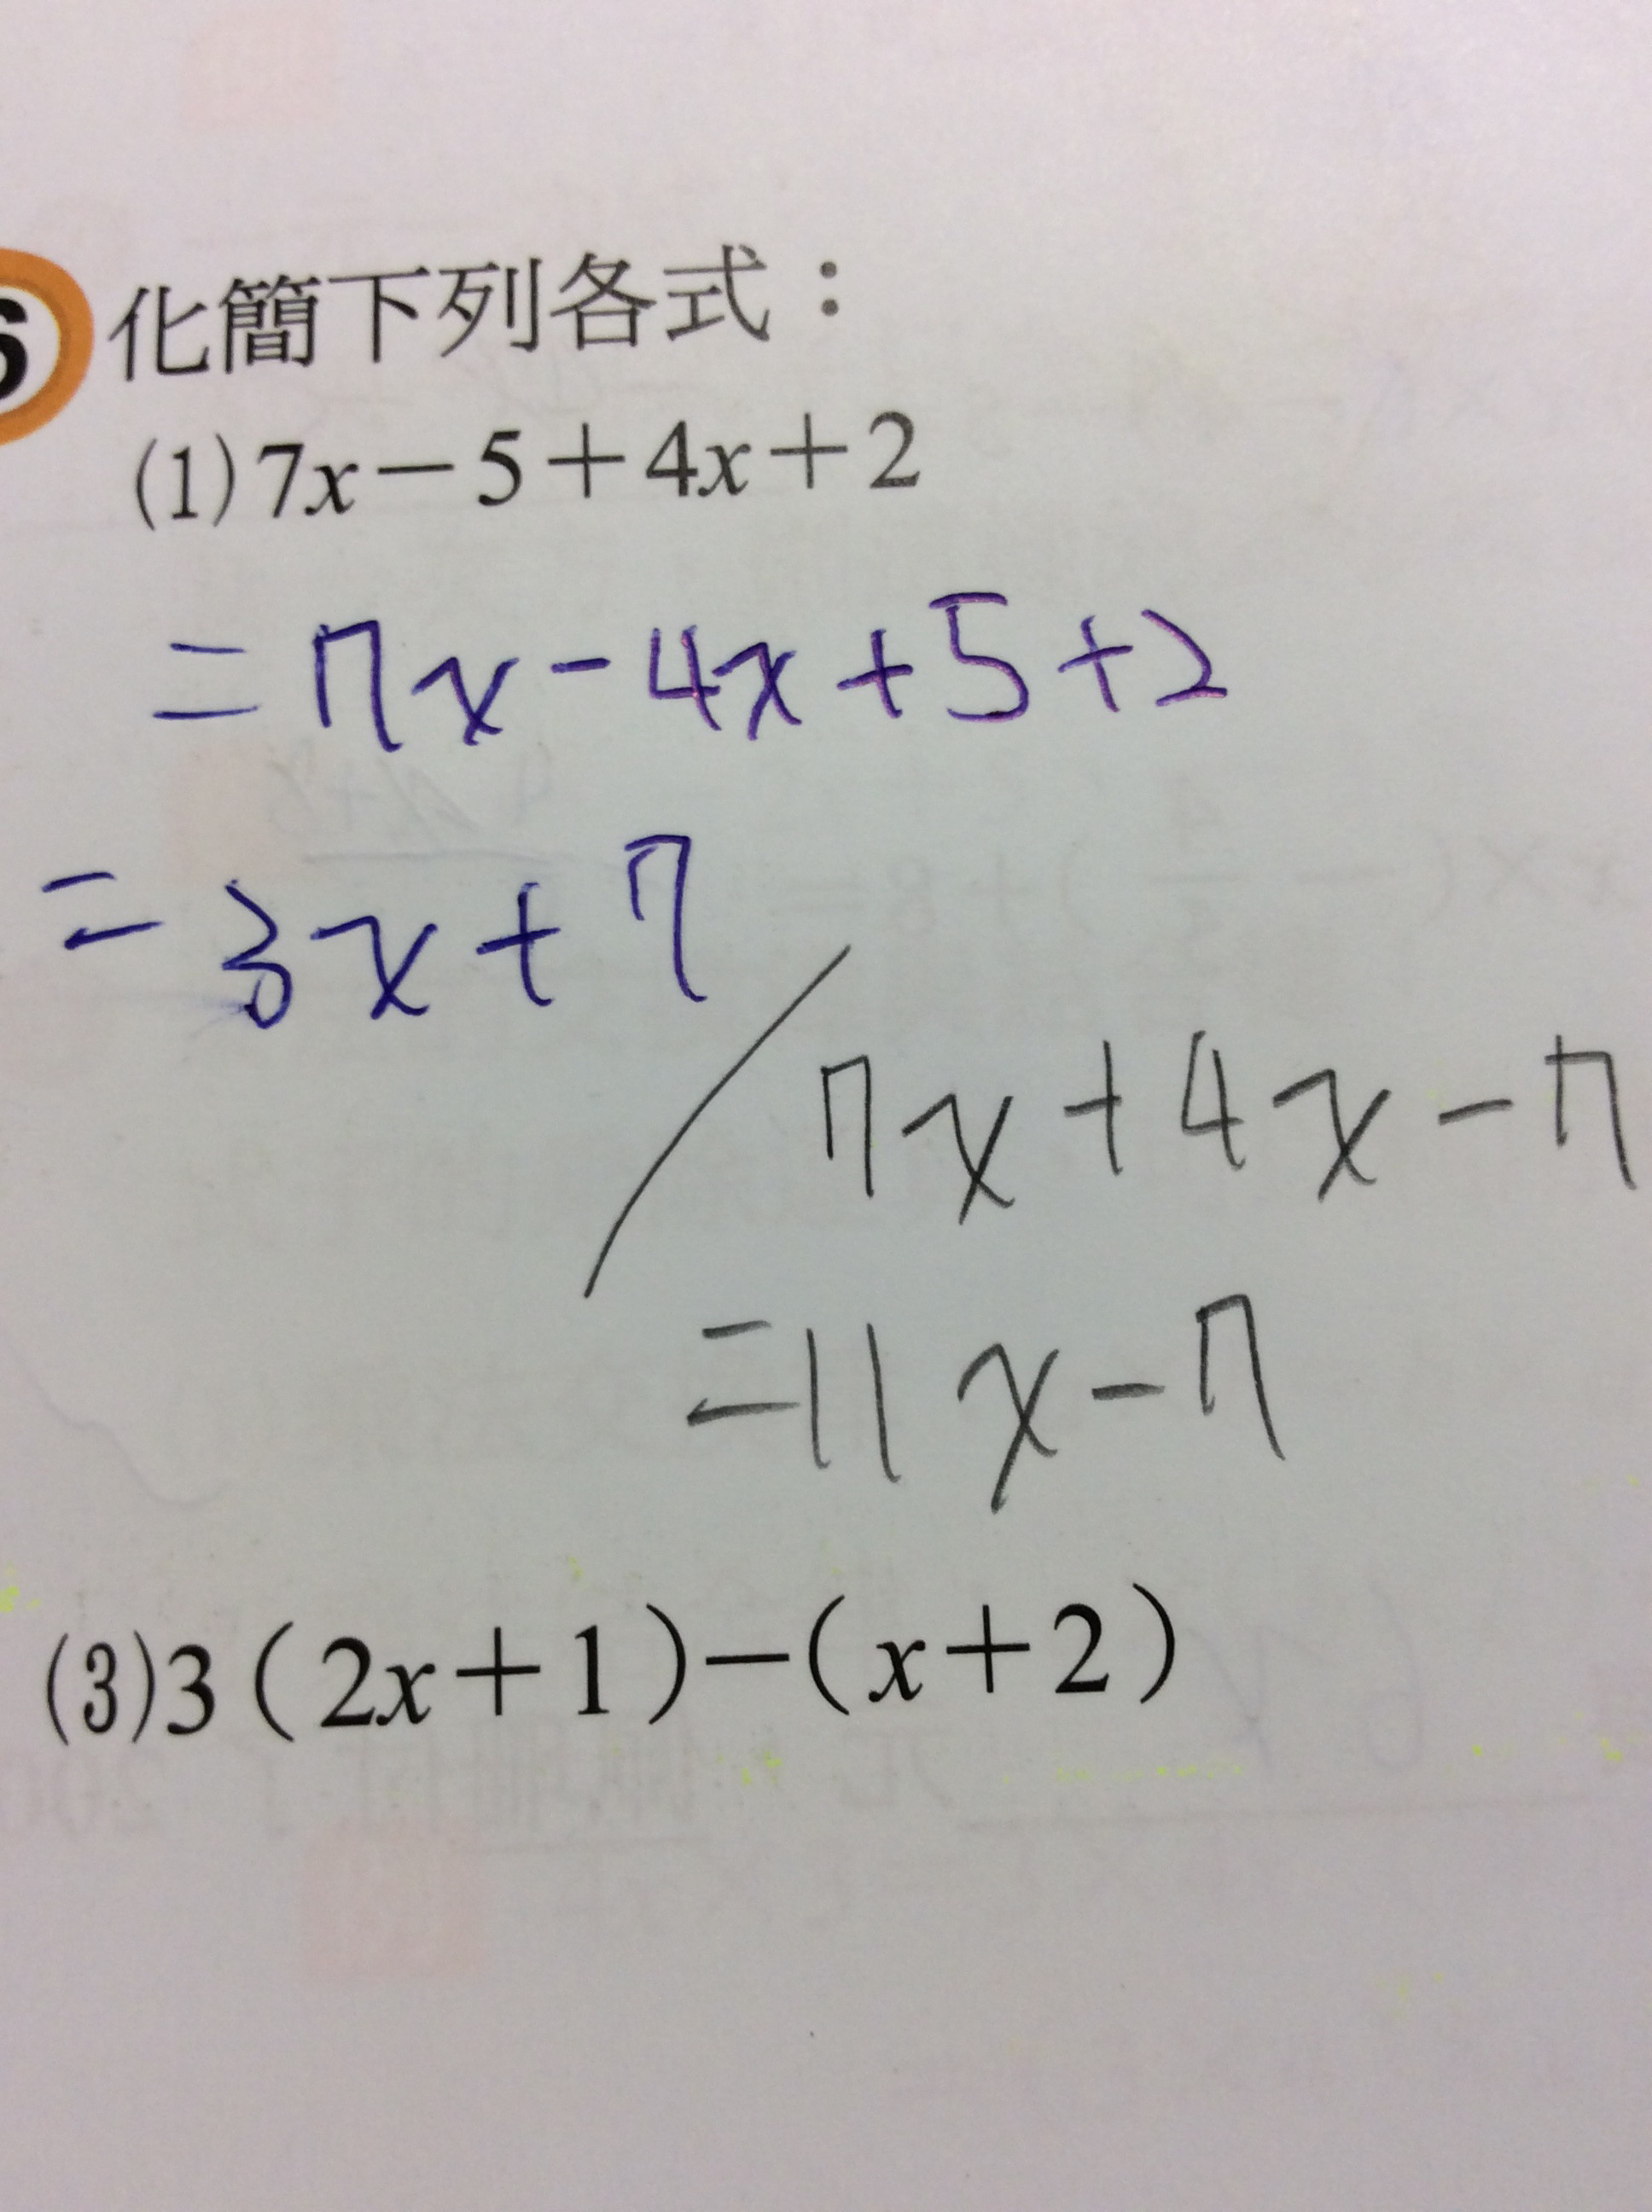 6 化簡下列各式：
(1) 7x－5＋4x＋2
= 7x - 4x + 5 + 2
= 3x + 7
7x + 4x - 7
= 11x - 7
(3) 3（2x＋1）－（x＋2）